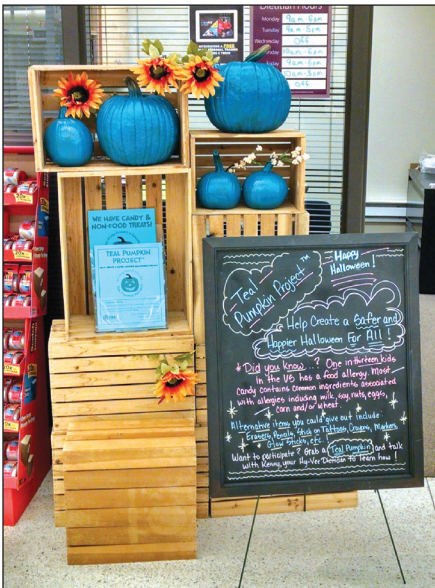 Dietitian Hours
Monday 9am-6pm
Tuesday 9am-3pm
Wednesday OFF
10am-6pm
9am-6pm
10am-3pm
OFF
FREE
WE HAVE CANDY &
NON-FOOD TREATS!
TEAL PUMPKIN
PROJECT™
Teal
Pumpkin Project™
Happy
Halloween!
Help Create a Safer and
Happier Halloween For All!
* Did you know..? One in thirteen kids
in the US has a food allergy. Most
candy contains common ingredients associated
with allergies including milk, soy, nuts, eggs,
corn and/or wheat.
Alternative items you could give out include:
Erasers, Pencils, Stick on Tattoos, Crayons, Markers,
Glow Sticks, etc.
Want to participate? Grab a Teal Pumpkin and talk
with Kenny, your Hy-Vee Dietitian to learn how!